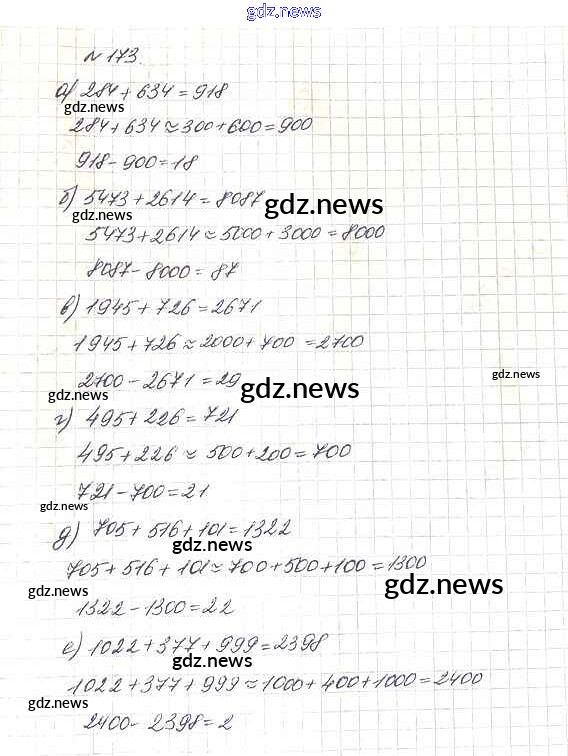 gdz.news
№ 173.
а) 284 + 634 = 918
gdz.news
284 + 634 ≈ 300 + 600 = 900
918 - 900 = 18
б) 5473 + 2614 = 8087
gdz.news
gdz.news
5473 + 2614 ≈ 5000 + 3000 = 8000
8087 - 8000 = 87
в) 1945 + 726 = 2671
1945 + 726 ≈ 2000 + 700 = 2700
gdz.news
2700 - 2671 = 29
gdz.news
gdz.news
г) 495 + 226 = 721
495 + 226 ≈ 500 + 200 = 700
721 - 700 = 21
gdz.news
д) 705 + 516 + 101 = 1322
gdz.news
705 + 516 + 101 ≈ 700 + 500 + 100 = 1300
gdz.news
gdz.news
1322 - 1300 = 22
е) 1022 + 377 + 999 = 2398
gdz.news
1022 + 377 + 999 ≈ 1000 + 400 + 1000 = 2400
gdz.news
2400 - 2398 = 2